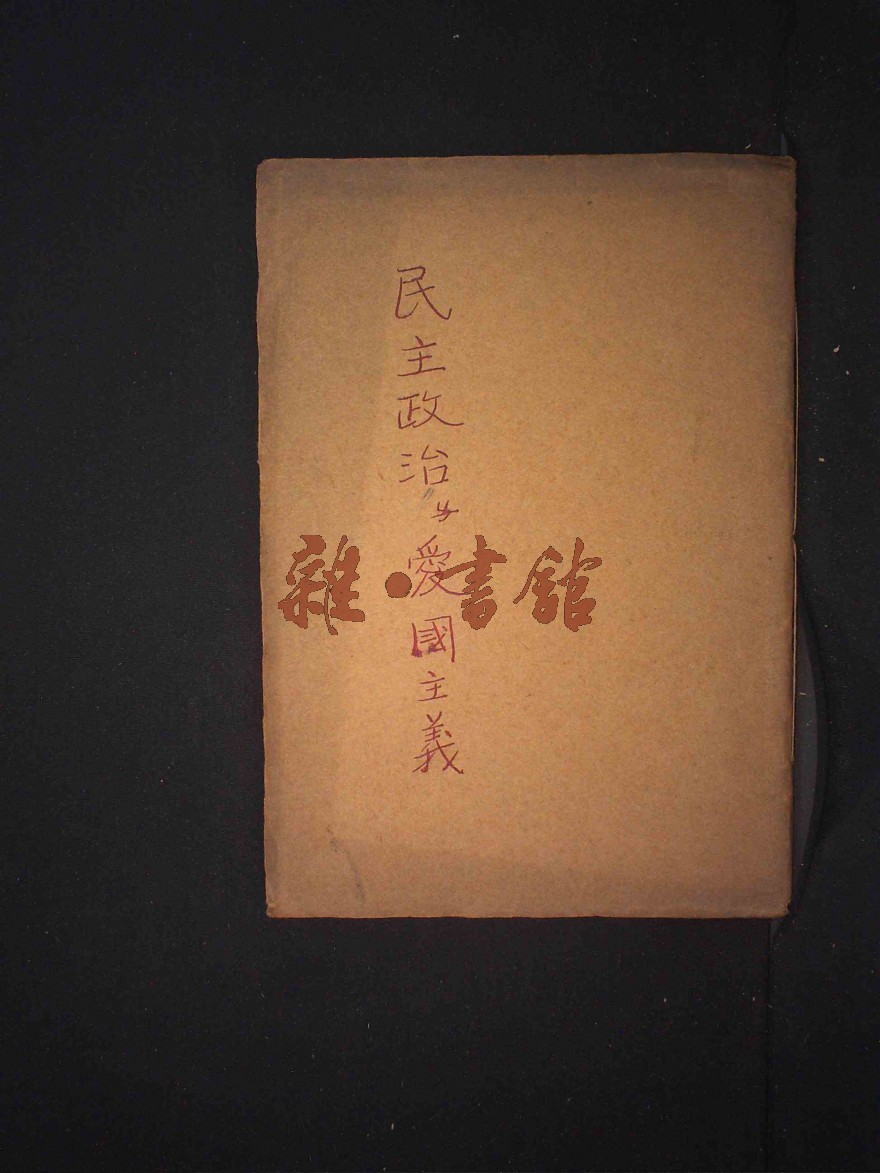 民主政治与愛國主義
雜·書館